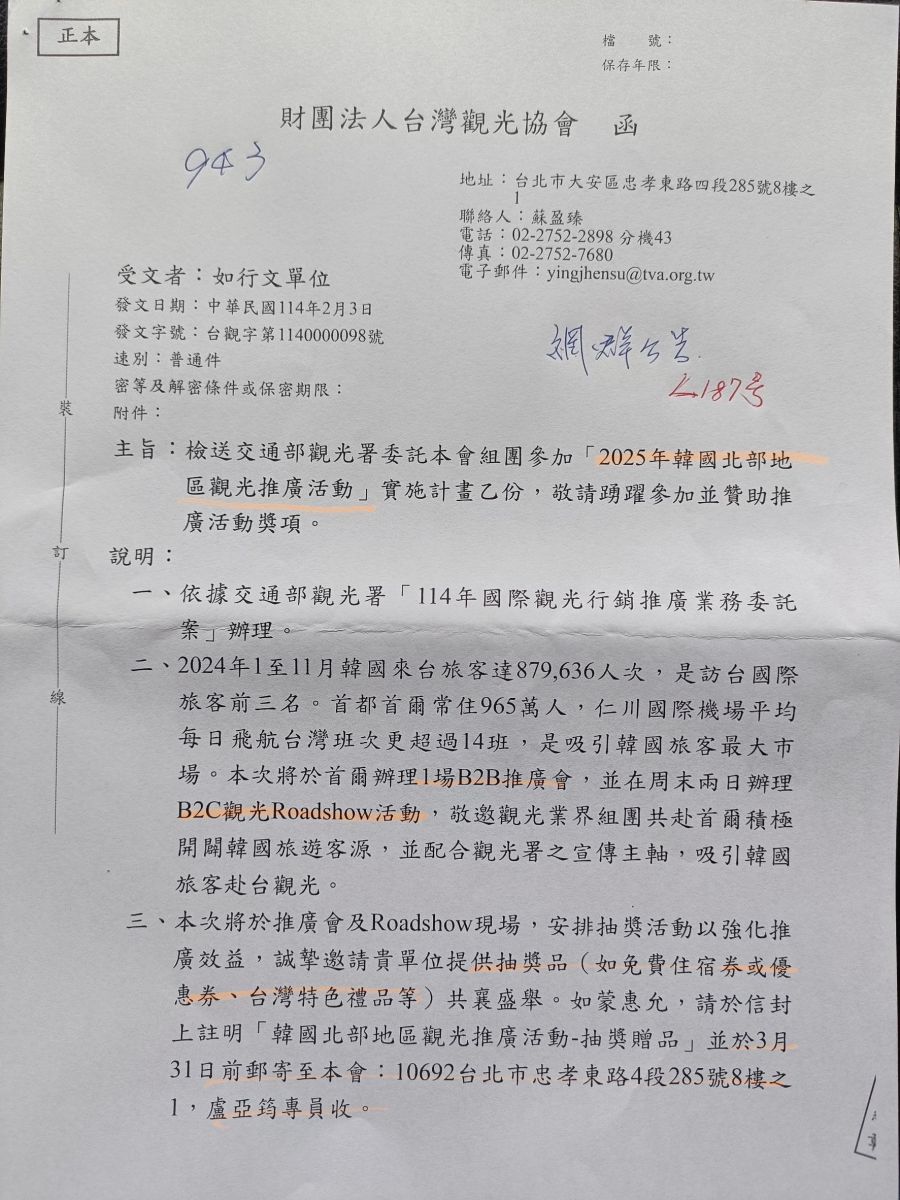 正本
檔　　號：
保存年限：
財團法人台灣觀光協會　函
943
地址：台北市大安區忠孝東路四段285號8樓之
1
聯絡人：蘇盈臻
電話：02-2752-2898 分機43
傳真：02-2752-7680
電子郵件：yingjhensu@tva.org.tw
受文者：如行文單位
發文日期：中華民國114年2月3日
發文字號：台觀字第1140000098號
速別：普通件
密等及解密條件或保密期限：
附件：
網群公告
187号
主旨：檢送交通部觀光署委託本會組團參加「2025年韓國北部地
區觀光推廣活動」實施計畫乙份，敬請踴躍參加並贊助推
廣活動獎項。
說明：
一、依據交通部觀光署「114年國際觀光行銷推廣業務委託
案」辦理。
二、2024年1至11月韓國來台旅客達879,636人次，是訪台國際
旅客前三名。首都首爾常住965萬人，仁川國際機場平均
每日飛航台灣班次更超過14班，是吸引韓國旅客最大市
場。本次將於首爾辦理1場B2B推廣會，並在周末兩日辦理
B2C觀光Roadshow活動，敬邀觀光業界組團共赴首爾積極
開闢韓國旅遊客源，並配合觀光署之宣傳主軸，吸引韓國
旅客赴台觀光。
三、本次將於推廣會及Roadshow現場，安排抽獎活動以強化推
廣效益，誠摯邀請貴單位提供抽獎品（如免費住宿券或優
惠券、台灣特色禮品等）共襄盛舉。如蒙惠允，請於信封
上註明「韓國北部地區觀光推廣活動-抽獎贈品」並於3月
31日前郵寄至本會：10692台北市忠孝東路4段285號8樓之
1，盧亞筠專員收。
裝
訂
線